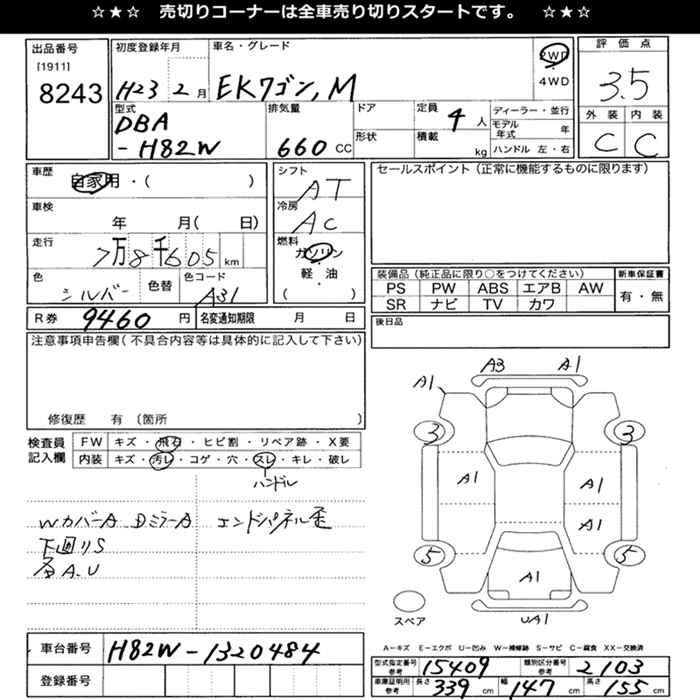 ☆★☆ 売切りコーナーは全車売り切りスタートです。 ☆★☆
出品番号 初度登録年月 車名・グレード 評価点
[1911]
8243 H23 2月 EKワゴン,M 2WD 4WD 3.5
型式 排気量 ドア 定員 ディーラー・並行 外装 内装
DBA-H82W 660CC 形状 4人 積載 kg モデル年式 年 ハンドル 左・右 C C
車歴 自家用・( ) シフト AT セールスポイント(正常に機能するものに限ります)
車検 年 月( 日) 冷房 AC
走行 7万8千605km 燃料 ガソリン・軽油 ( )
色 シルバー 色替 色コード A31
装備品(純正品に限り○をつけてください) 新車保証書
PS PW ABS エアB AW 有・無
SR ナビ TV カワ
R券 9460円 名変通知期限 月 日 後日品
注意事項申告欄(不具合内容等は具体的に記入して下さい)
修復歴 有 (箇所
検査員記入欄 FW キズ・飛石・ヒビ割・リペア跡・X要
内装 キズ・汚レ・コゲ・穴・スレ・キレ・破レ
ハンドル
WカバーA DミラーA エンドパネル歪
下廻りS
各A.U
A3 A1
A1
3 3
A1 A1
A1
5 5
A1
スペア UA1
A-キズ E-エクボ U-凹み W-補修跡 S-サビ C-腐食 XX-交換済
車台番号 H82W-1320484
登録番号
型式指定番号 参考 15409 類別区分番号 参考 2103
車庫証明用 参考 長さ 339cm 幅 147cm 高さ 155cm